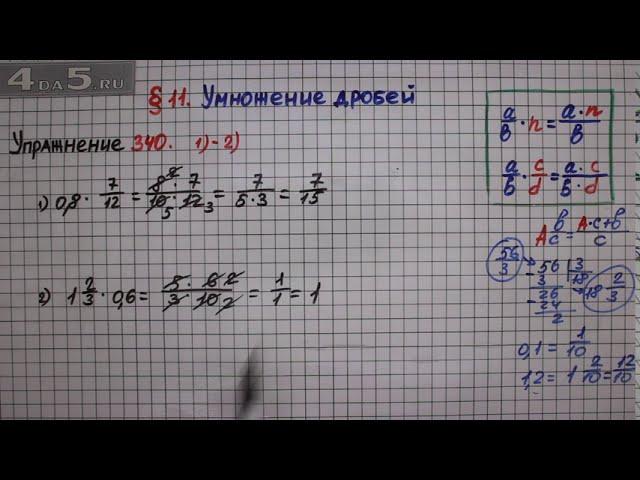 4DA5.RU
§ 11. Умножение дробей
Упражнение 340. 1)-2)
1) 0,8 · 7/12 = 8 2 · 7 / 10 · 12 5 3 = 7 / 5·3 = 7/15
2) 1 2/3 · 0,6 = 5 · 6 2 / 3 · 10 2 = 1/1 = 1
a/b · n = a·n/b
a/b · c/d = a·c/b·d
A b/c = A·c+b/c
56/3
56 | 3
3 18 18 2/3
26
- 24
2
0,1 = 1/10
1,2 = 1 2/10 = 12/10